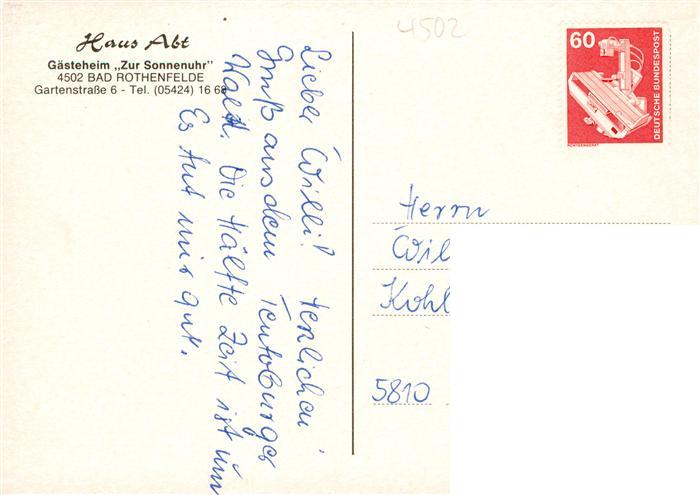 4502
Haus Abt
Gästeheim „Zur Sonnenuhr"
4502 BAD ROTHENFELDE
Gartenstraße 6 - Tel. (05424) 16 68
Lieber Willi! Herzlichen
Gruß aus dem Teutoburger
Wald. Die Hälfte Zeit ist um
Es tut mir gut.
60
DEUTSCHE BUNDESPOST
RÖNTGENGERÄT
Herrn
Wil
Kohl
5810